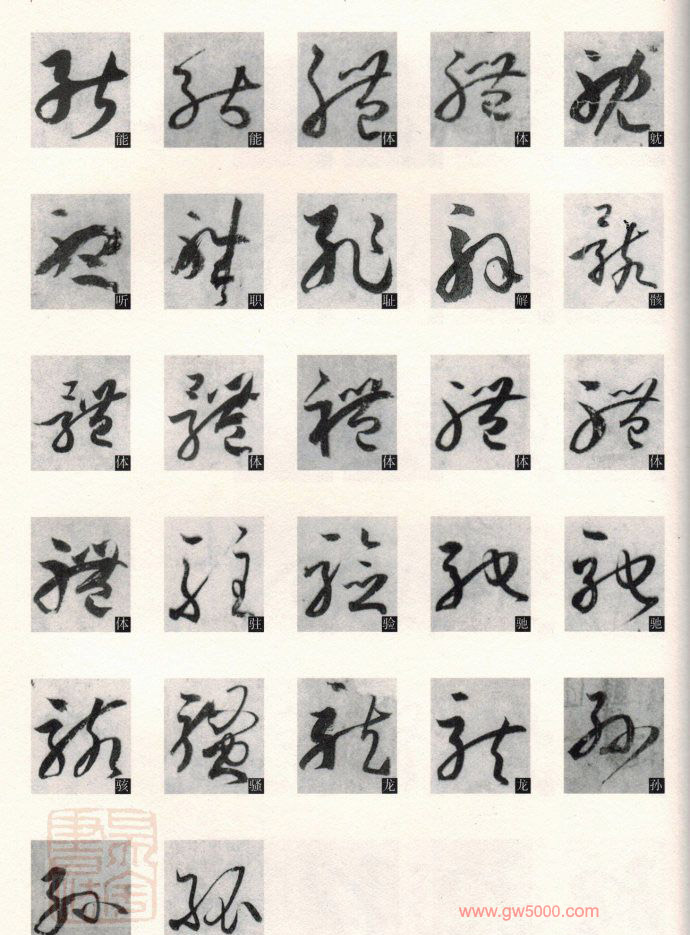 能 能 体 体 躭
听 职 耻 解 骸
体 体 体 体 体
体 驻 验 驰 驰
骇 骚 龙 龙 孙
www.gw5000.com